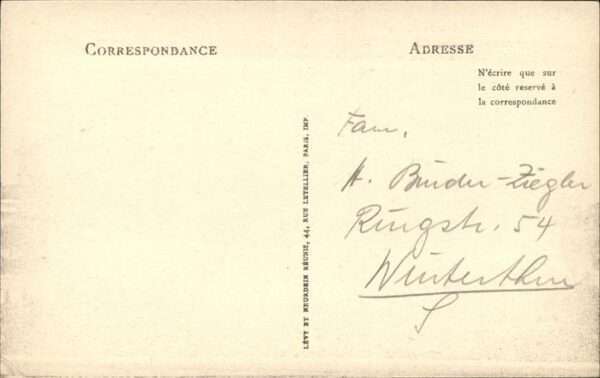 CORRESPONDANCE
ADRESSE
N'écrire que sur
le côté reservé à
la correspondance
LÉVY ET NEURDEIN RÉUNIS, 44, RUE LETELLIER, PARIS, IMP.
Fam.
A. Binder-Ziegler
Ringstr. 54
Winterthur
S